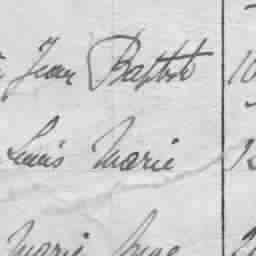 Jean Baptiste 10
Louis Marie
Marie Anne